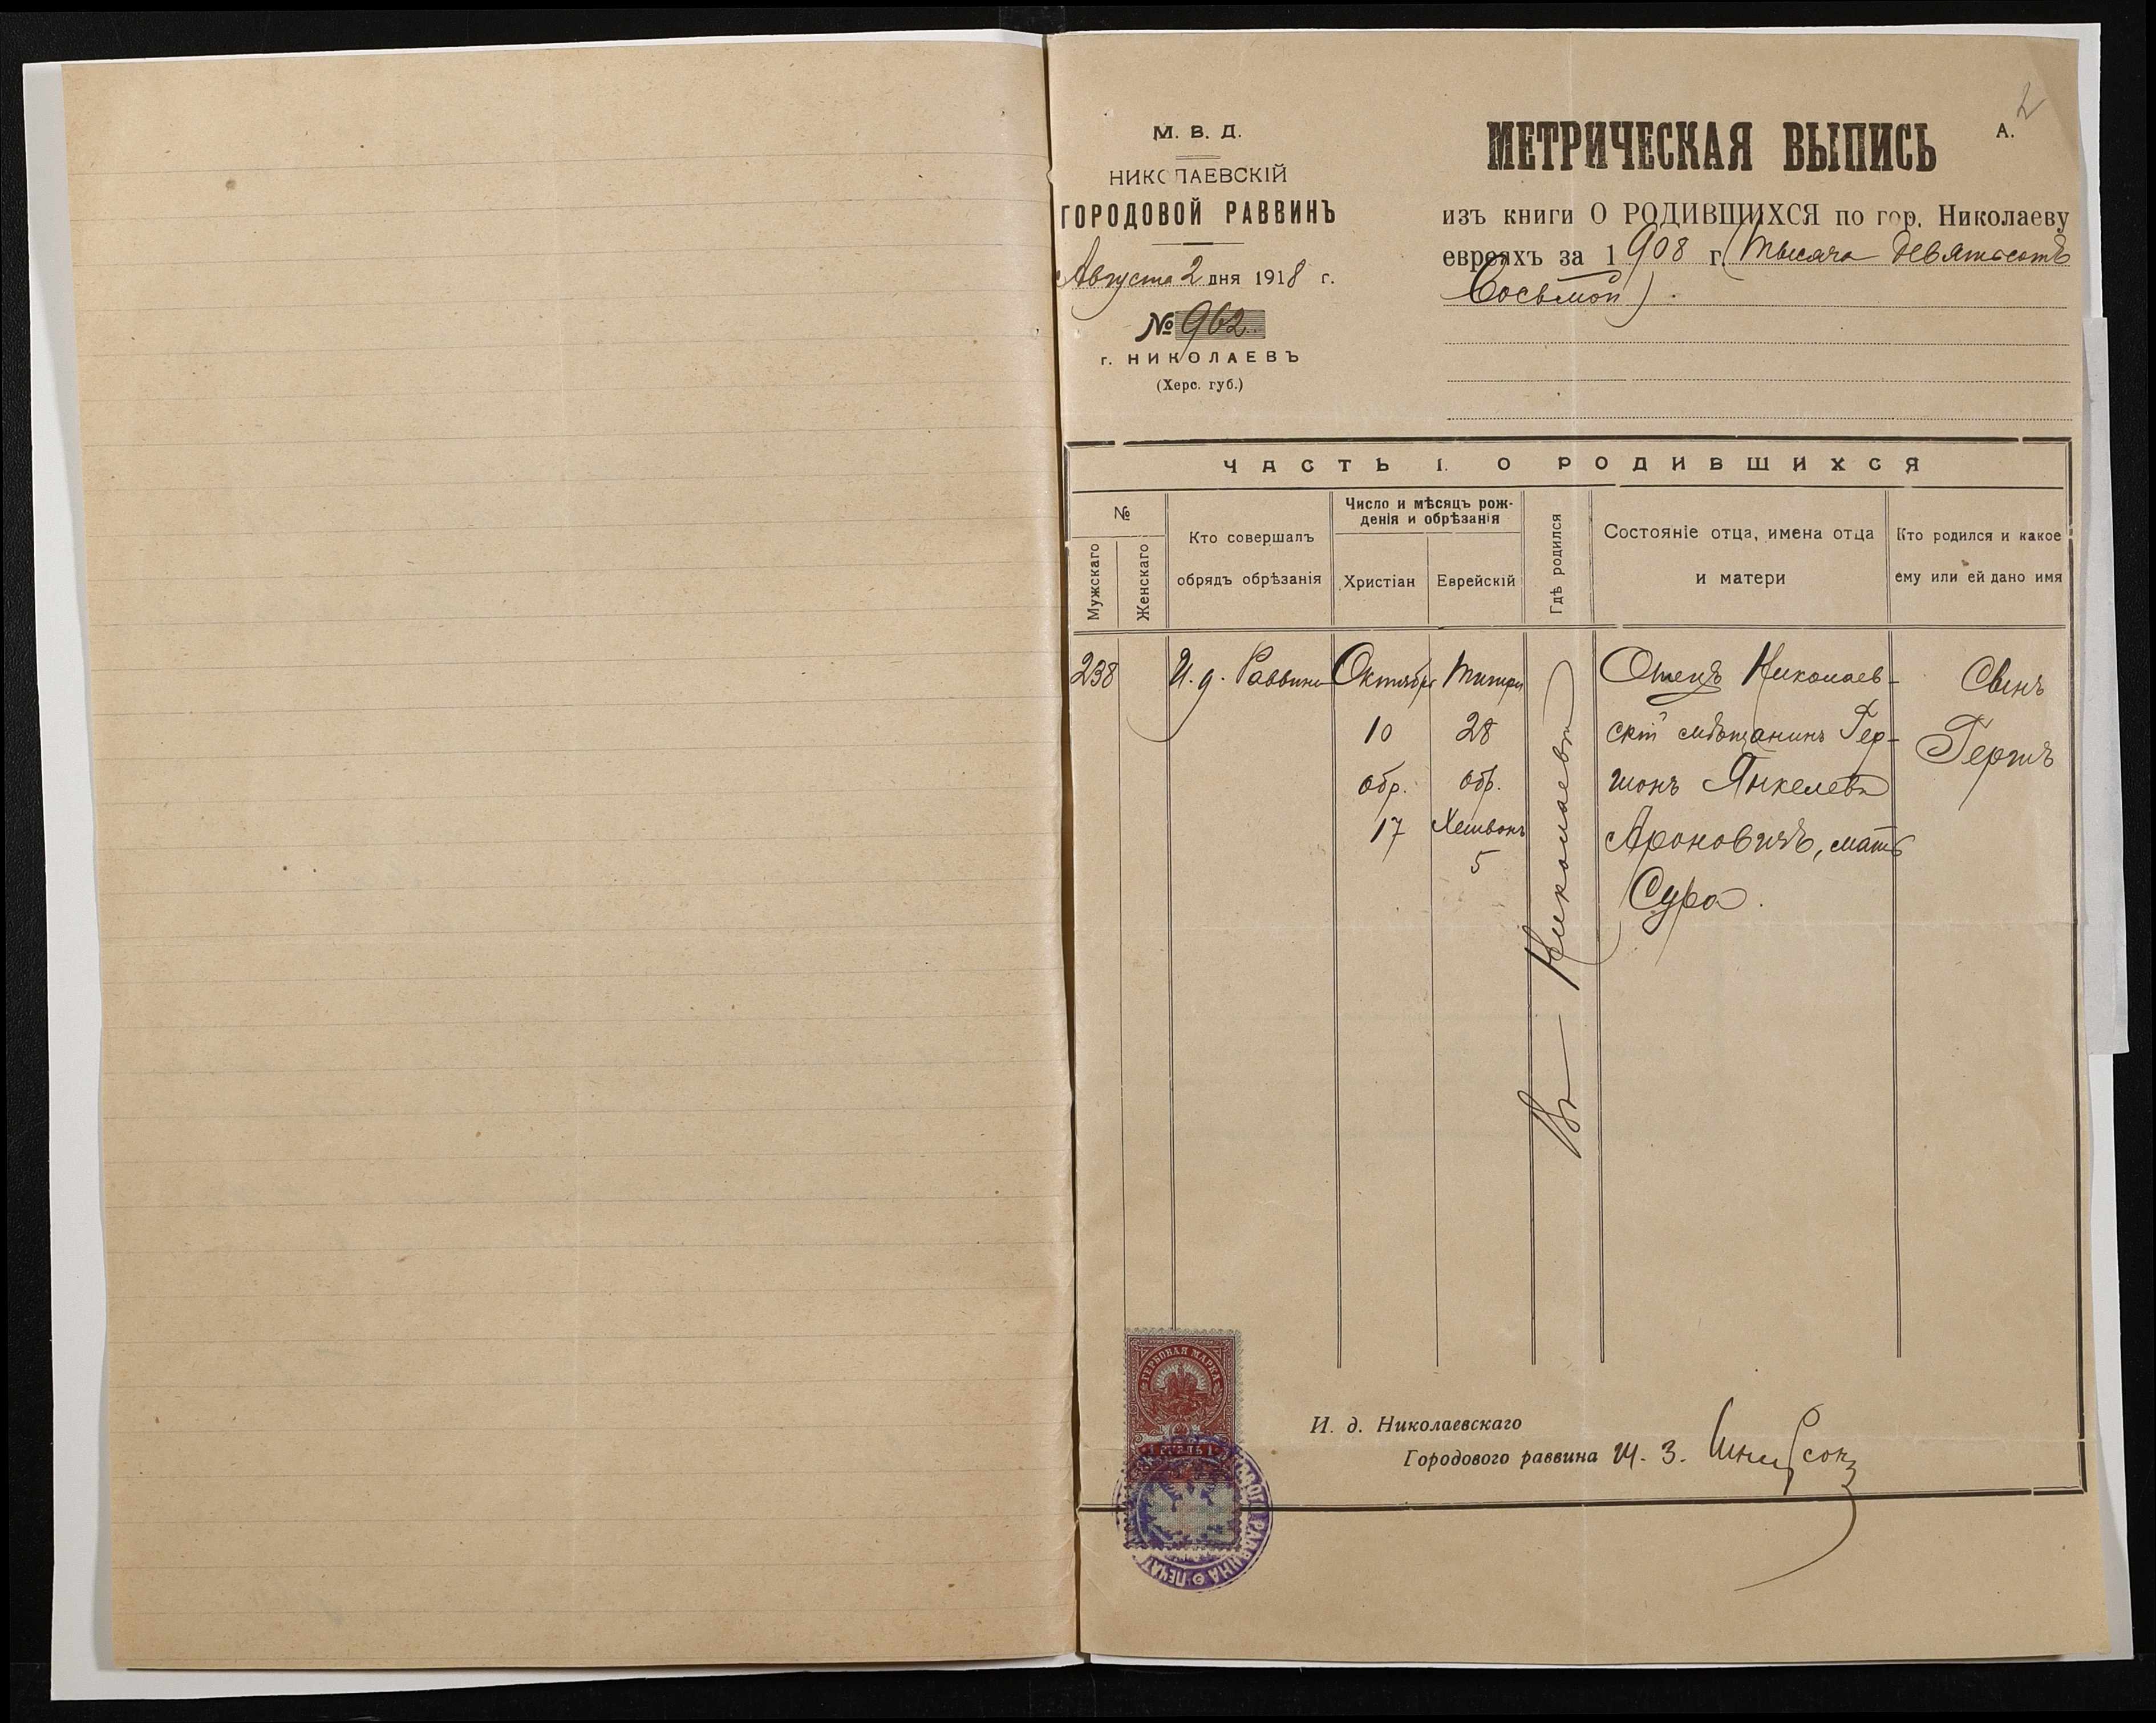 2
М. В. Д.
НИКОЛАЕВСКІЙ
ГОРОДОВОЙ РАВВИНЪ
Августа 2 дня 1918 г.
№ 962
г. НИКОЛАЕВЪ
(Херс. губ.)
МЕТРИЧЕСКАЯ ВЫПИСЬ
А.
изъ книги О РОДИВШИХСЯ по гор. Николаеву
евреяхъ за 1908 г. (тысяча девятьсотъ
восьмой).
ЧАСТЬ I. О РОДИВШИХСЯ
№
Мужскаго
Женскаго
Кто совершалъ
обрядъ обрѣзанія
Число и мѣсяцъ рож-
денія и обрѣзанія
Христіан
Еврейскій
Гдѣ родился
Состояніе отца, имена отца
и матери
Кто родился и какое
ему или ей дано имя
238
И. д. Раввина
Октября
10
обр.
17
Тишри
28
обр.
Хешвонъ
5
Въ Николаевѣ
Отецъ Николаев-
скій мѣщанинъ Гер-
шонъ Янкелевъ
Ароновичъ, мать
Сура.
Сынъ
Гершъ
ГЕРБОВАЯ МАРКА
1 РУБЛЬ 1
РАВВИНА ПЕЧАТ
И. д. Николаевскаго
Городового раввина Ш. З. Шнеерсонъ